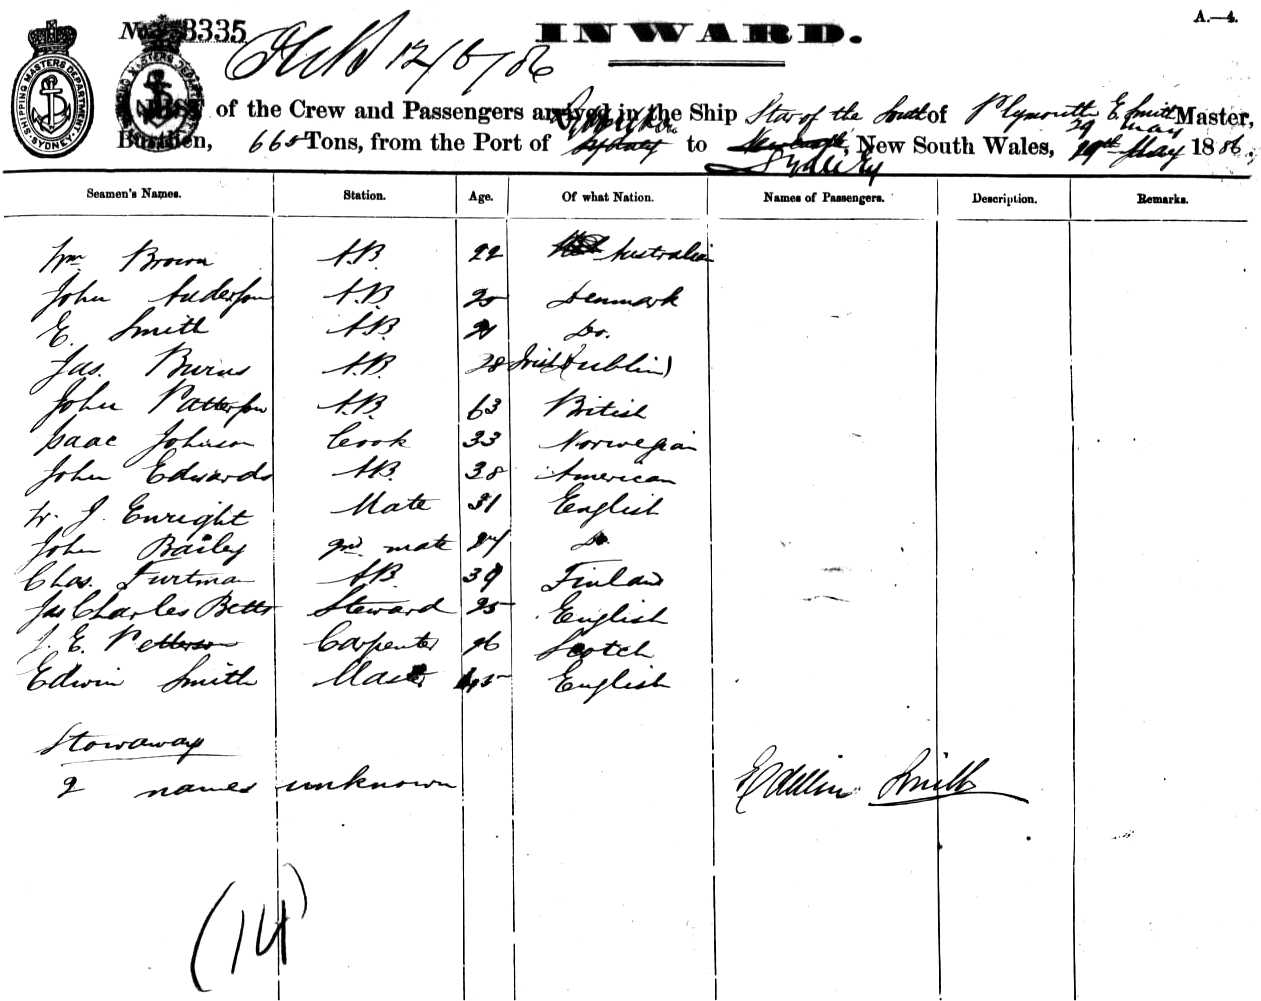 No. 3335
INWARD.
A.—4.
12/6/86
SHIPPING MASTERS DEPARTMENT
SYDNEY
LIST of the Crew and Passengers arrived in the Ship Star of the South of Plymouth E. Smith Master,
Burthen, 665 Tons, from the Port of Sydney to Newcastle, New South Wales, 29th May 1886.
Sydney
29 May
Seamen's Names. Station. Age. Of what Nation. Names of Passengers. Description. Remarks.
Wm Brown A.B. 22 Australian
John Anderson A.B. 25 Denmark
E. Smith A.B. 21 Do.
Jas. Burns A.B. 28 Irish (Dublin)
John Patterson A.B. 63 British
Isaac Johnson Cook 33 Norwegian
John Edwards A.B. 38 American
W. J. Enright Mate 31 English
John Bailey 2nd mate 27 Do.
Chas. Furtman A.B. 39 Finland
Jas Charles Betts Steward 25 English
J. E. Petterson Carpenter 26 Scotch
Edwin Smith Master 45 English
Stowaways
2 names unknown
Edwin Smith
(14)